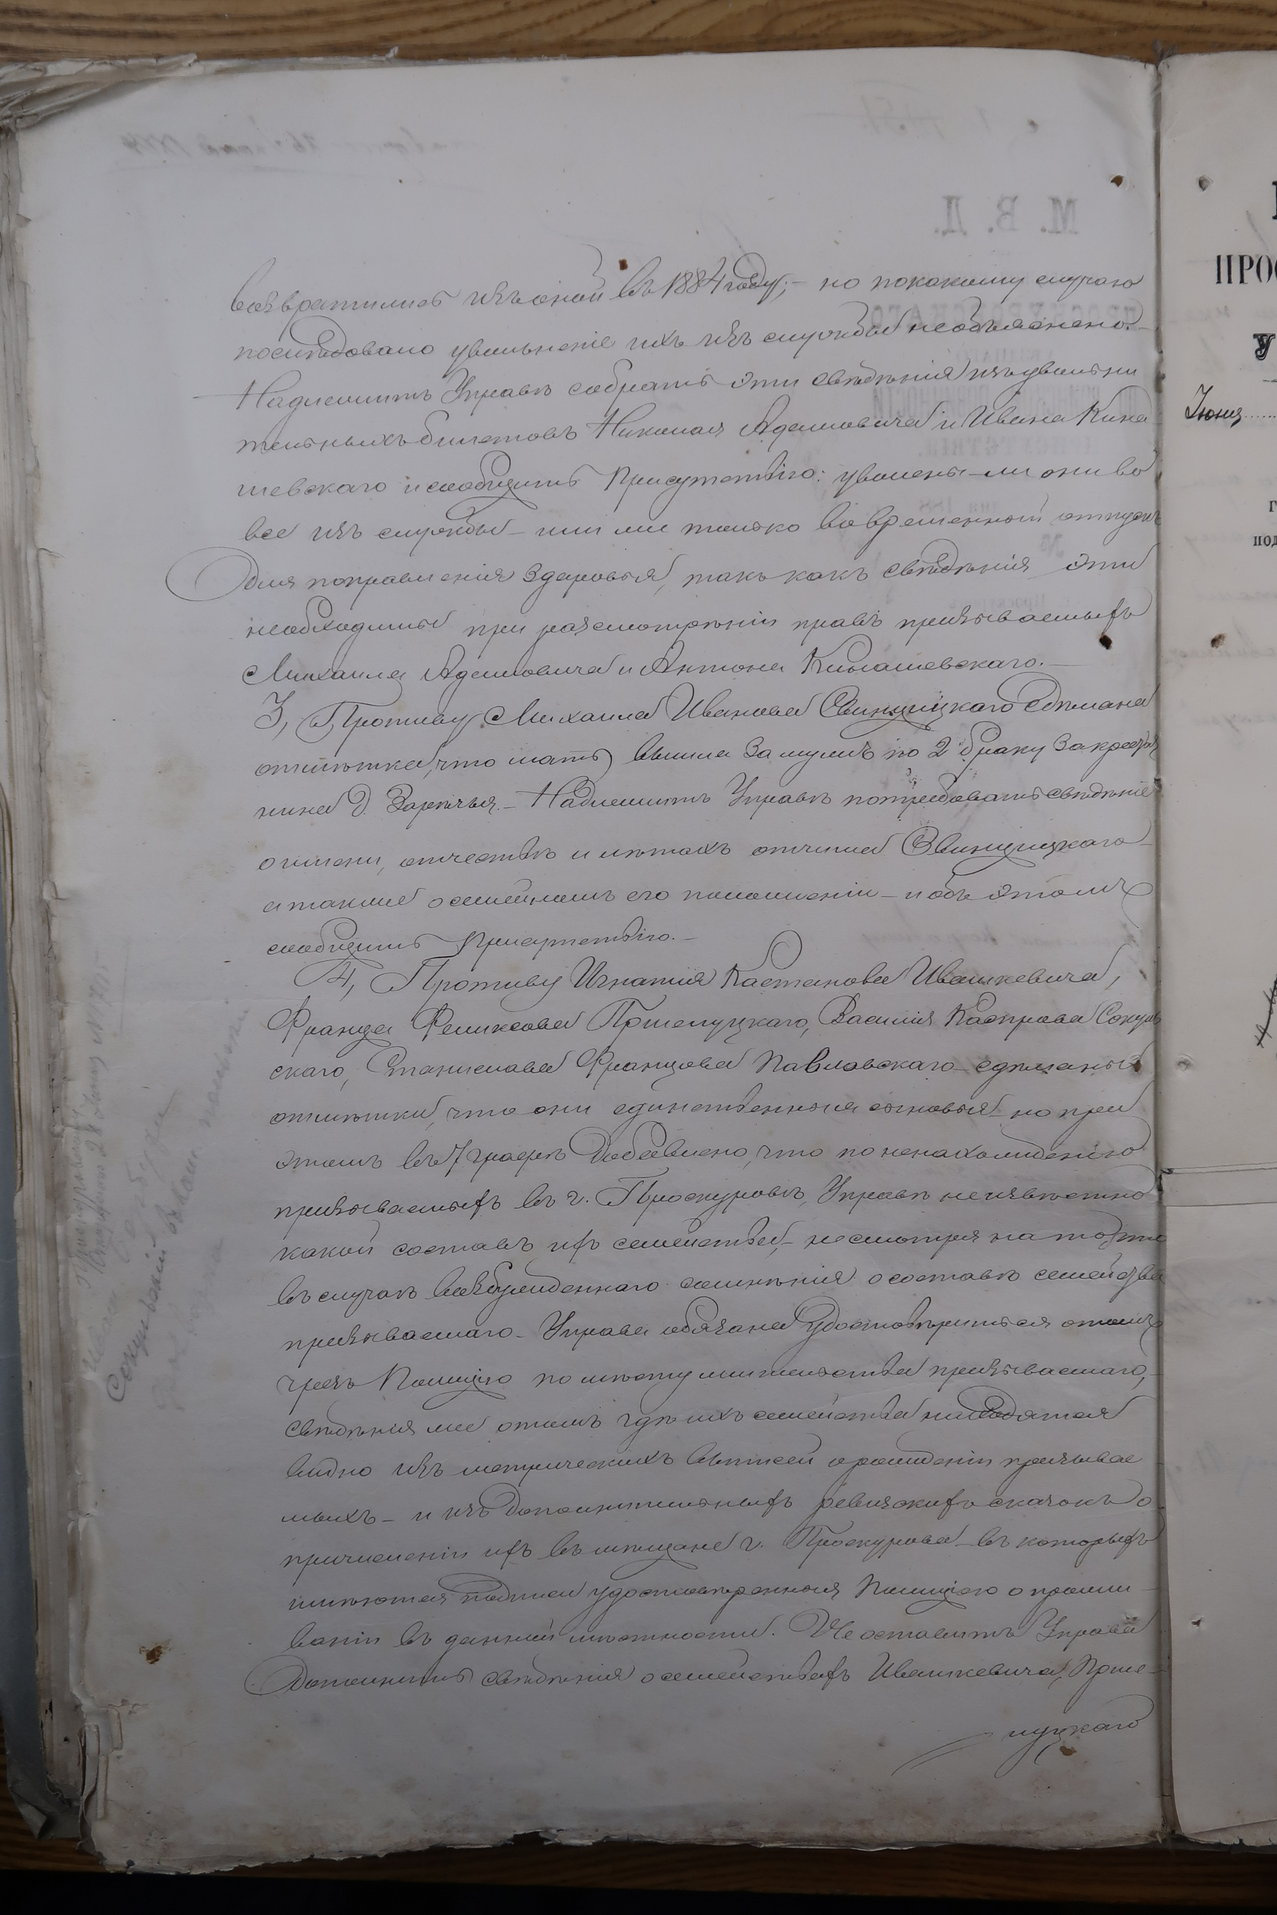 возвратились изъ оной въ 1884 году; – но по какому случаю
последовало увольненіе ихъ изъ службы необъяснено. –
Надлежитъ Управѣ собрать эти свѣдѣнія изъ увольни
тельныхъ билетовъ Николая Адамовича и Ивана Кина
шевскаго и сообщить Присутствію: уволены-ли они во
все изъ службы – или же только во временный отпускъ
для поправленія здоровья, такъ какъ свѣдѣнія эти
необходимы при разсмотрѣніи правъ призываемыхъ
Михаила Адамовича и Антона Кинашевскаго. –
3, Противу Михаила Иванова Свинцицкаго сдѣлана
отмѣтка, что мать вышла замужъ по 2 браку за крестья
нина д. Зарѣчья. – Надлежитъ Управѣ потребовать свѣдѣніе
о имени, отчествѣ и лѣтахъ отчима Свинцицкаго
а также о семейномъ его положеніи – и объ этомъ
сообщить Присутствію. –
4, Противу Игнатія Каетанова Ивашкевича,
Франца Феликсова Пржелуцкаго, Василія Каспрова Сокуль
скаго, Станислава Францова Павловскаго – сдѣланы
отмѣтки, что они единственныя сыновья – но при
этомъ въ 7 графѣ добавлено, что по ненахожденію
призываемыхъ въ г. Проскуровѣ, Управѣ неизвѣстно
какой составъ ихъ семействъ, – несмотря на то, что
въ случаѣ возбужденнаго сомнѣнія о составѣ семейства
призываемаго – Управа обязана удостовѣриться о томъ
чрезъ Полицію по мѣсту жительства призываемаго, –
свѣдѣнія же о томъ гдѣ ихъ семейства находятся
видно изъ метрическихъ выписей о рожденіи призывае
мыхъ – и изъ дополнительныхъ ревизскихъ сказокъ о
причисленіи ихъ въ мѣщане г. Проскурова – въ которыхъ
имѣются подписи удостовѣренныя Полиціею о прожи
ваніи въ данной мѣстности. Не оставитъ Управа
дополнить свѣдѣнія о семействахъ Ивашкевича, Прже-
луцкаго
Сокульскій
М. В. Д.
ПРО
У
Іюня
под